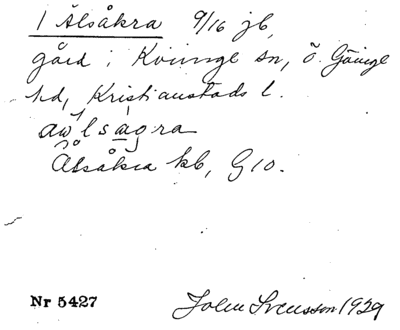 1 Älsåkra 9/16 jb,
gård i Kviinge sn, ö. Göinge
hd, Kristianstads l.
awlsagra
Älsåkra kb, G10.
Nr 5427
John Svensson 1929